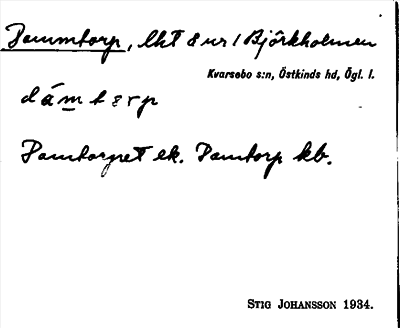 Dammtorp, lht 8 ur 1 Björkholmen
Kvarsebo s:n, Östkinds hd, Ögl. l.
dámtɛrp
Damtorpet ek. Damtorp kb.
STIG JOHANSSON 1934.